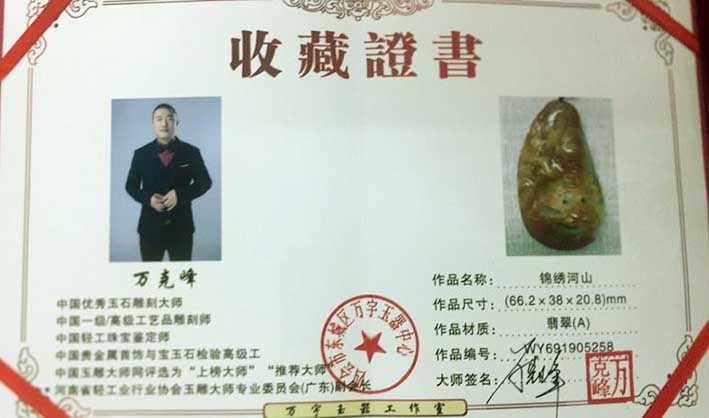 收藏證書
万克峰
中国优秀玉石雕刻大师
中国一级/高级工艺品雕刻师
中国轻工珠宝鉴定师
中国贵金属首饰与宝玉石检验高级工
中国玉雕大师网评选为“上榜大师”“推荐大师”
河南省轻工业行业协会玉雕大师专业委员会(广东)副会长
作品名称: 锦绣河山
作品尺寸: (66.2×38×20.8)mm
作品材质: 翡翠(A)
作品编号: WY691905258
大师签名:
万克峰
市东城区万字玉器中心
万字玉器工作室